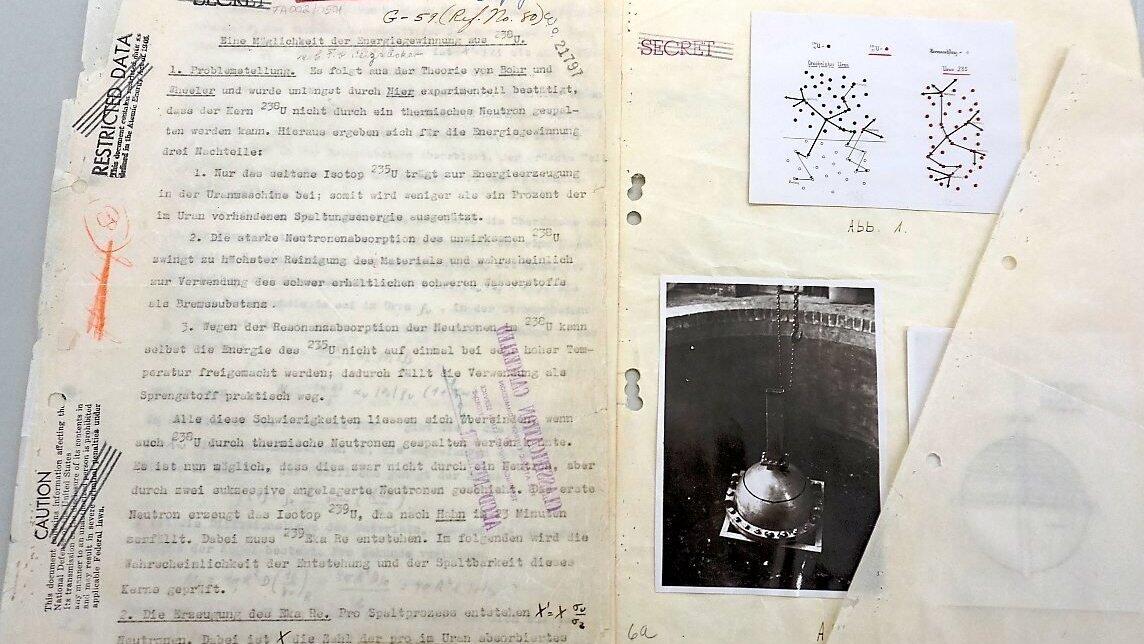 SECRET
G-59. (Ref. No. 80)
21797
Eine Möglichkeit der Energiegewinnung aus 238U.
1. Problemstellung. Es folgt aus der Theorie von Bohr und
Wheeler und wurde unlängst durch Nier experimentell bestätigt,
dass der Kern 238U nicht durch ein thermisches Neutron gespal-
ten werden kann. Hieraus ergeben sich für die Energiegewinnung
drei Nachteile:
1. Nur das seltene Isotop 235U trägt zur Energieerzeugung
in der Uranmaschine bei; somit wird weniger als ein Prozent der
im Uran vorhandenen Spaltungsenergie ausgenützt.
2. Die starke Neutronenabsorption des unwirksamen 238U
zwingt zu höchster Reinigung des Materials und wahrscheinlich
zur Verwendung des schwer erhältlichen schweren Wasserstoffs
als Bremssubstanz.
3. Wegen der Resonanzabsorption der Neutronen 238U kann
selbst die Energie des 235U nicht auf einmal bei sehr hoher Tem-
peratur freigemacht werden; dadurch fällt die Verwendung als
Sprengstoff praktisch weg.
Alle diese Schwierigkeiten liessen sich überwinden wenn
auch 238U durch thermische Neutronen gespalten werden könnte.
Es ist nun möglich, dass dies zwar nicht durch ein Neutron, aber
durch zwei sukzessive angelagerte Neutronen geschieht. Das erste
Neutron erzeugt das Isotop 239U, das nach Hahn in 23 Minuten
zerfällt. Dabei muss 239Eka Re entstehen. Im folgenden wird die
Wahrscheinlichkeit der Entstehung und der Spaltbarkeit dieses
Kerns geprüft.
2. Die Erzeugung des Eka Re. Pro Spaltprozess entstehen
Neutronen. Dabei ist X die Zahl der pro im Uran absorbiertes
RESTRICTED DATA
This document contains restricted data as
defined in the Atomic Energy Act of 1946.
CAUTION
This document contains information affecting the
National Defense of the United States
its transmission or the disclosure of its contents in
any manner to an unauthorized person is prohibited
and may result in severe criminal penalties under
applicable Federal laws.
CLASSIFICATION CANCELLED
SECRET
Uran 235
Abb. 1.
6a
A